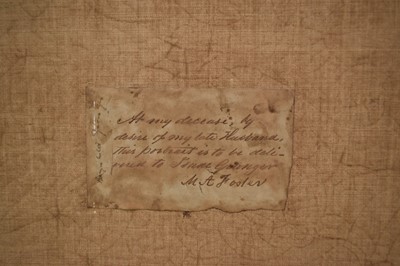 At my decease, by
desire of my late Husband,
this portrait is to be deli-
vered to Isaac Granger
M. A. Foster